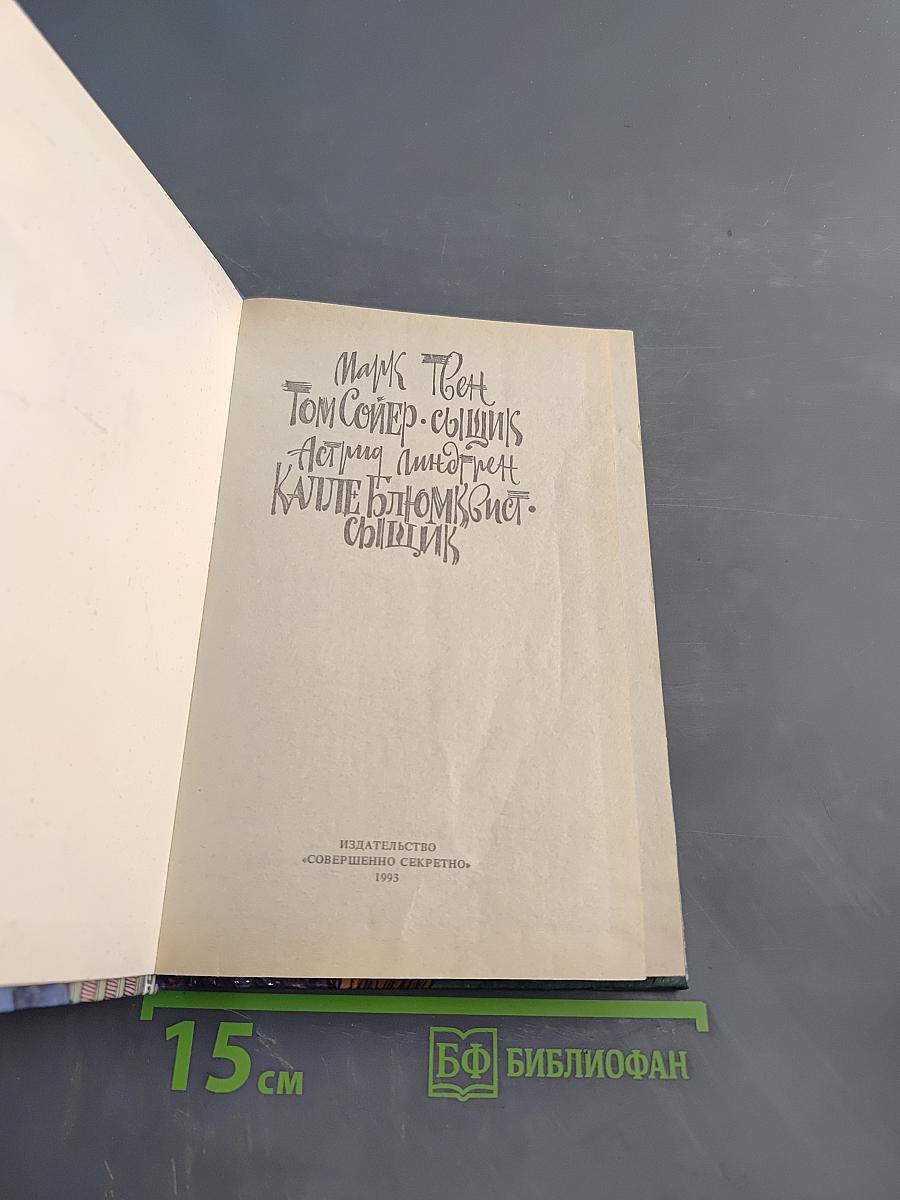 Марк Твен
Том Сойер · сыщик
Астрид Линдгрен
Калле Блюмквист ·
сыщик
ИЗДАТЕЛЬСТВО
«СОВЕРШЕННО СЕКРЕТНО»
1993
15 см
БФ БИБЛИОФАН